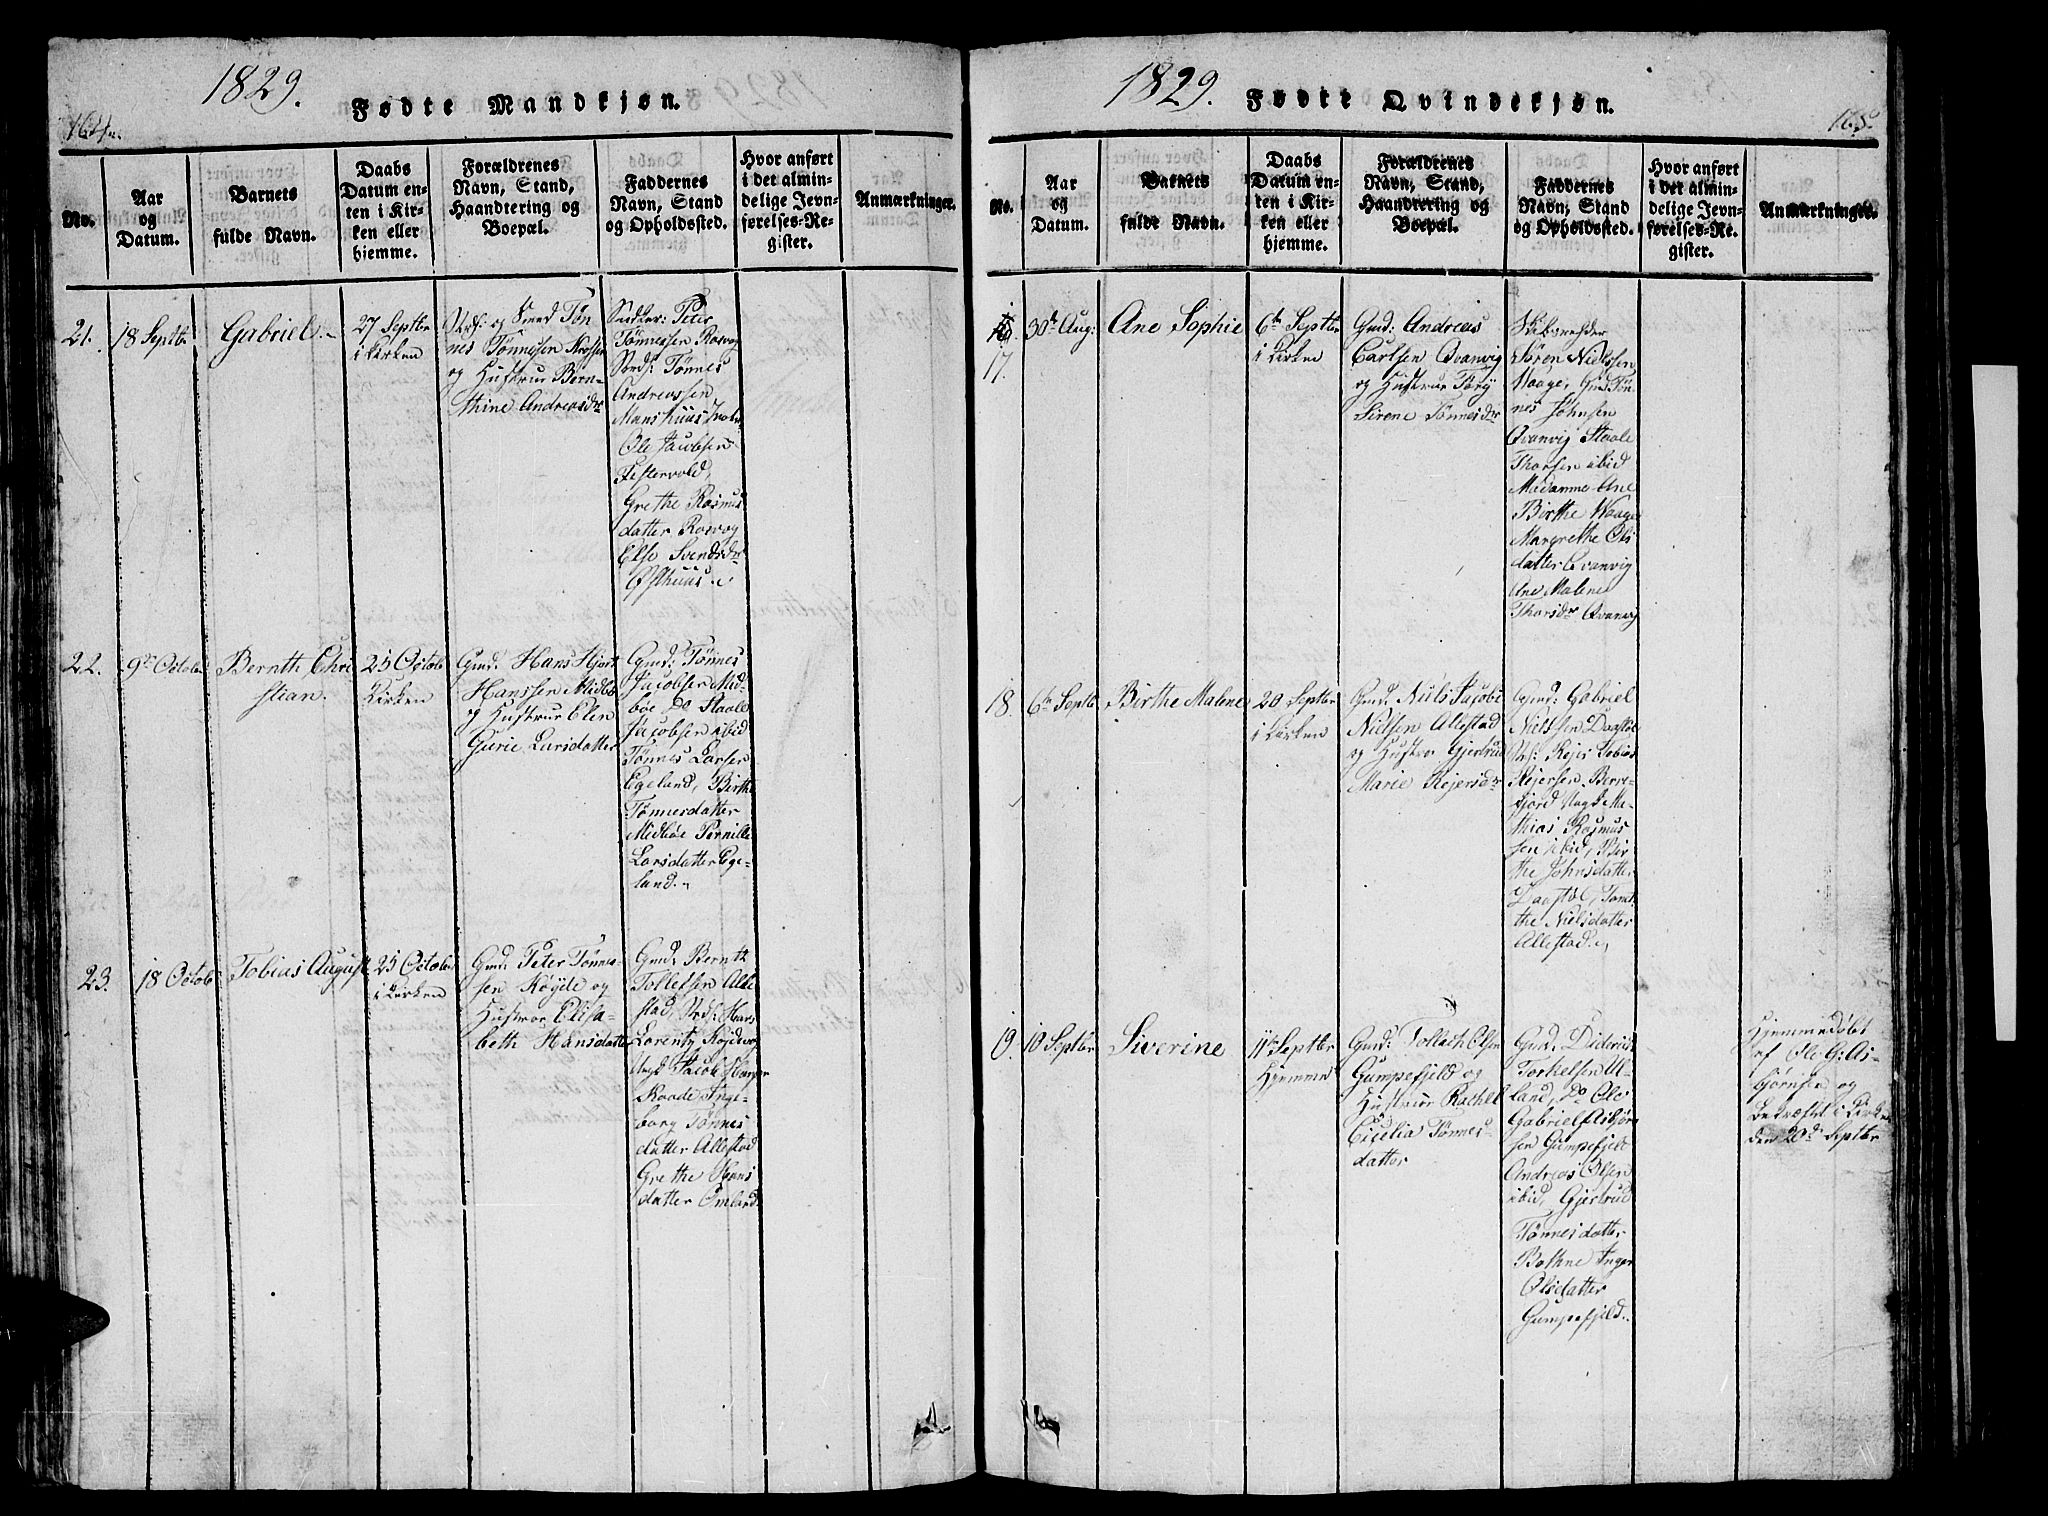 1829.
Fødte Mandkjøn.
No.
Aar
og
Datum.
Barnets
fulde Navn.
Daabs
Datum en-
ten i Kir-
ken eller
hjemme.
Forældrenes
Navn, Stand,
Haandtering og
Boepæl.
Faddernes
Navn, Stand
og Opholdssted.
Hvor anført
i det almin-
delige Jevn-
førelses-Re-
gister.
Anmærkninger.
21.
18 Septbr
Gabriel
27 Septbr
i Kirken
og Smed Tøn
nes Tønnessen
og Hustrue Bern-
thine Andreasdr
Peter
Tønnessen Rosvog
Tønnes
Andreassen
Ole Jacobsen
Grethe Rasmus
datter Rosvog
Else Svendsdr
Østhuus
22.
9de Octobr
Bernth Chri
stian.
25 Octobr
i Kirken
Gmd: Hans Hjort
Hanssen Midbø
og Hustrue Elen
Gurie Larsdatter
Gmd: Tønnes
Jacobsen Mid-
bøe Do Staale
Jacobsen ibid
Tønnes Larsen
Egeland, Birthe
Tønnesdatter
Midbøe Pernille
Larsdatter Ege-
land.
23.
18 Octobr
Tobias August
25 Octobr
i Kirken
Gmd: Peter Tønne-
sen Røyde og
Hustrue Elisa-
beth Hansdatter
Gmd: Bernth
Tollefsen Alle
stad, Hans
Lorentz
Ungk Jacob
Raade Inge-
borg Tønnes
datter Allestad
Grethe Hans
datter Omland
1829.
Fødte Qvindekjøn.
165.
No.
Aar
og
Datum.
Barnets
fulde Navn.
Daabs
Datum en-
ten i Kir-
ken eller
hjemme.
Forældrenes
Navn, Stand,
Haandtering og
Boepæl.
Faddernes
Navn, Stand
og Opholdssted.
Hvor anført
i det almin-
delige Jevn-
førelses-Re-
gister.
Anmærkninger.
17.
30te Aug:
Ane Sophie
6te Septbr
i Kirken
Gmd: Andreas
Carlsen Qvanvig
og Hustrue Torg
Sirene Tønnesdr
Skibsrheder
Søren Nielssen
Waage, Gmd: Tøn
nes Johnsen
Qvanvig Staale
Thorsen ibid
Madamme Ane
Birthe Waage
Margrethe Ols
datter Qvanvig
Ane Malene
Thorsdr Qvanvig
18.
6te Septb
Birthe Malene
20 Septbr
i Kirken
Gmd: Niels Jacob
Nielsen Allestad
og Hustrue Gjertrud
Marie Rejersdr
Gmd: Gabriel
Nielssen Daastøl
Rejer Tobias
Rejersen Berre-
fjord Ungk Ma-
thias Rasmus
sen ibid, Bir
the Johnsdatter
Daastøl, Tomi
the Nielsdatter
Allestad.
19.
10 Septbr
Siverine
11te Septbr
Hjemme
Gmd: Tollach Olsen
Gumpefjeld og
Hustrue Rachel
Cicelia Tønnes-
datter
Gmd: Diderich
Torkelsen Ul-
land, Do Ole
Gabriel Asbjørn
sen Gumpefjeld
Andreas Olsen
ibid, Gjertrud
Tønnesdatter
Bothne Inger
Olsdatter
Gumpefjeld.
Hjemmedøbt
af Ole G: As-
bjørnsen og
bekræftet i Kirken
den 20de Septbr